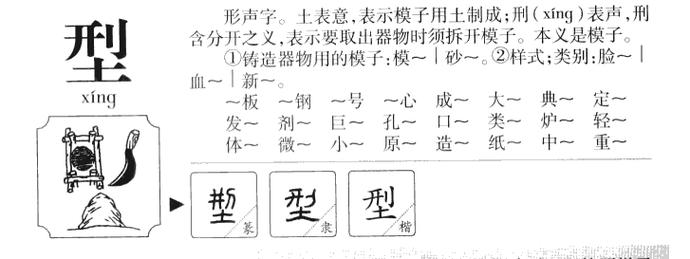 型
xíng
形声字。土表意,表示模子用土制成;刑(xíng)表声,刑
含分开之义,表示要取出器物时须拆开模子。本义是模子。
①铸造器物用的模子:模～｜砂～。②样式;类别:脸～｜
血～｜新～。
～板 ～钢 ～号 ～心 成～ 大～ 典～ 定～
发～ 剂～ 巨～ 孔～ 口～ 类～ 炉～ 轻～
体～ 微～ 小～ 原～ 造～ 纸～ 中～ 重～
型 篆 型 隶 型 楷